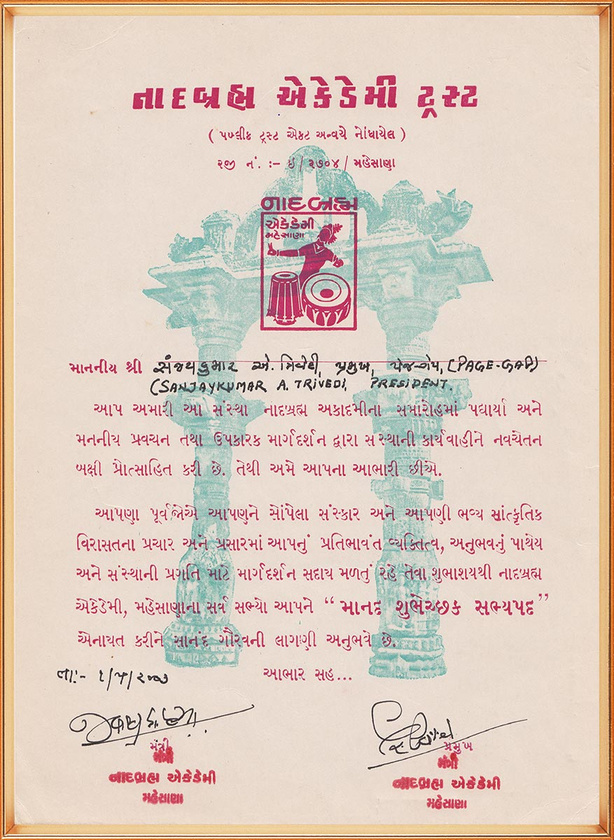 નાદબ્રહ્મ એકેડેમી ટ્રસ્ટ
( પબ્લીક ટ્રસ્ટ એકટ અન્વયે નોંધાયેલ )
રજી નં. :- ઈ / ૨૭૦૪ / મહેસાણા
નાદબ્રહ્મ
એકેડેમી
મહેસાણા
માનનીય શ્રી સંજયકુમાર એ. ત્રિવેદી, પ્રમુખ, પેજ-ગેપ, (PAGE-GAP)
(SANJAYKUMAR A. TRIVEDI, PRESIDENT.
આપ અમારી આ સંસ્થા નાદબ્રહ્મ અકાદમીના સમારોહમાં પધાર્યા અને
મનનીય પ્રવચન તથા ઉપકારક માર્ગદર્શન દ્વારા સંસ્થાની કાર્યવાહીને નવચેતન
બક્ષી પ્રોત્સાહિત કરી છે. તેથી અમે આપના આભારી છીએ.
આપણા પૂર્વજોએ આપણને સોંપેલા સંસ્કાર અને આપણી ભવ્ય સાંસ્કૃતિક
વિરાસતના પ્રચાર અને પ્રસારમાં આપનું પ્રતિભાવંત વ્યક્તિત્વ, અનુભવનું પાથેય
અને સંસ્થાની પ્રગતિ માટે માર્ગદર્શન સદાય મળતું રહે તેવા શુભાશયથી નાદબ્રહ્મ
એકેડેમી, મહેસાણાના સર્વ સભ્યો આપને “ માનદ શુભેચ્છક સભ્યપદ ”
એનાયત કરીને સાનંદ ગૌરવની લાગણી અનુભવે છે.
આભાર સહ...
તા:-
મંત્રી
પ્રમુખ
મંત્રી
મંત્રી
નાદબ્રહ્મ એકેડેમી
નાદબ્રહ્મ એકેડેમી
મહેસાણા
મહેસાણા